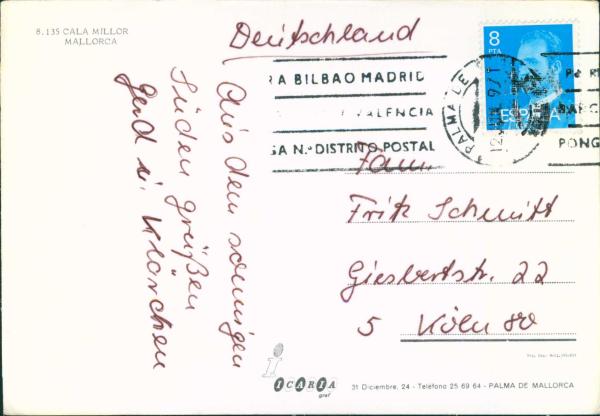 8.135 CALA MILLOR
MALLORCA
Deutschland
Aus dem sonnigen
Süden grüßen
Gerd u. Klärchen
8
PTA
ESPAÑA
PALMA DE
RA BILBAO MADRID
VALENCIA
SA N.º DISTRITO POSTAL
BARC
PONG
Fam.
Fritz Schmitt
Giesbertstr. 22
5 Köln 80
i
ICARIA
graf
31 Diciembre, 24 - Teléfono 25 69 64 - PALMA DE MALLORCA